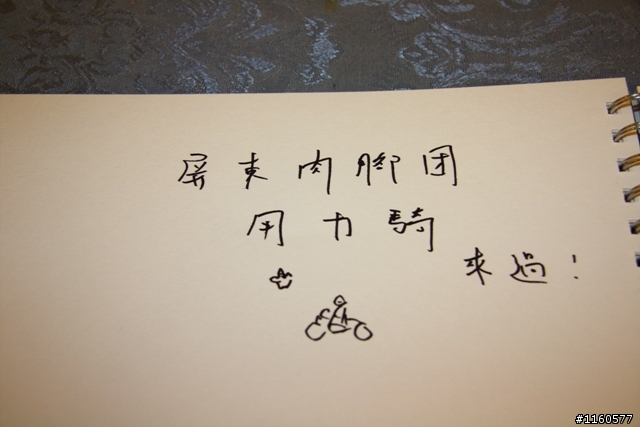 屏東肉腳団
用力騎
來過!
#1160577